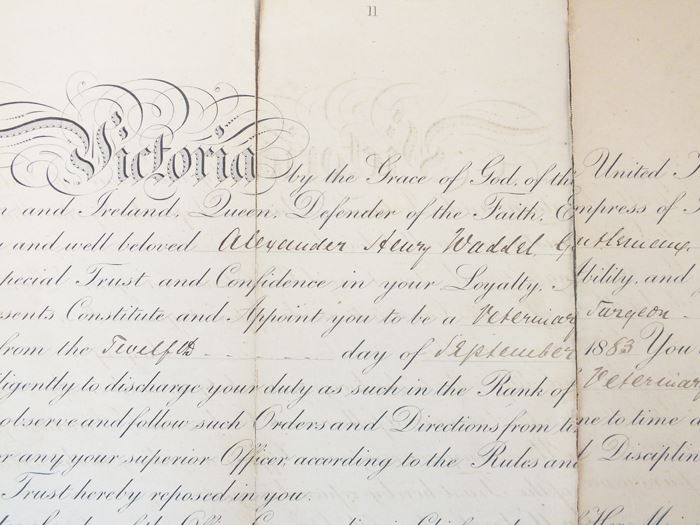 11
Victoria by the Grace of God, of the United
and Ireland, Queen, Defender of the Faith, Empress of
and well beloved Alexander Henry Waddel, Gentleman,
special Trust and Confidence in your Loyalty, Ability, and
sents Constitute and Appoint you to be a Veterinary Surgeon
from the Twelfth day of September 1883 You
ligently to discharge your duty as such in the Rank of Veterinary
observe and follow such Orders and Directions from time to time
or any your superior Officer, according to the Rules and Disciplin
Trust hereby reposed in you.